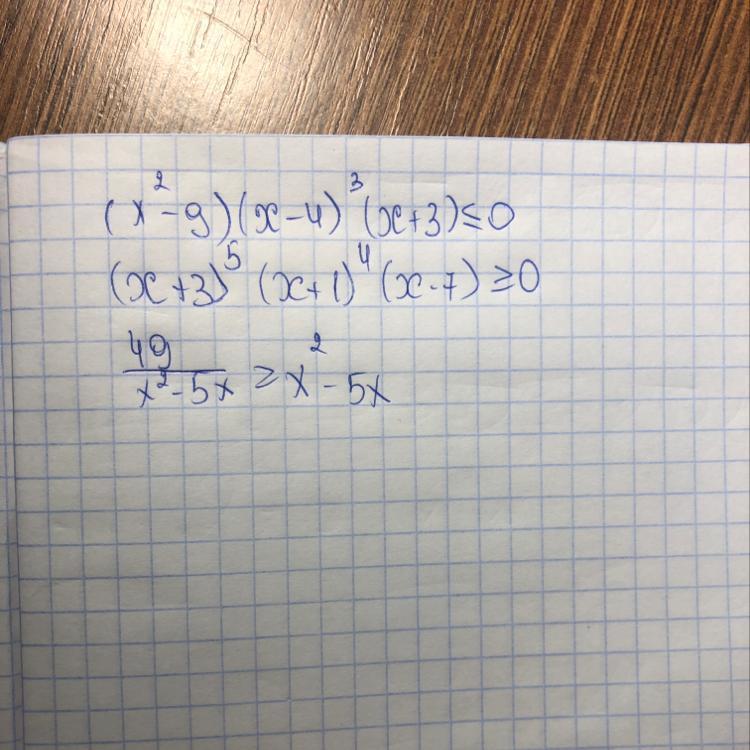 (x² - 9)(x - 4)³(x + 3) ≤ 0
(x + 3)⁵ (x + 1)⁴ (x - 7) ≥ 0
49/(x² - 5x) ≥ x² - 5x